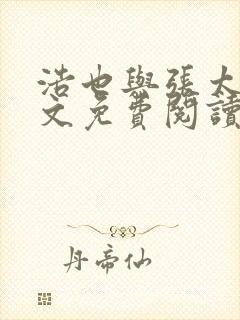 浩也與張太
文免費閱讀
丹帝仙